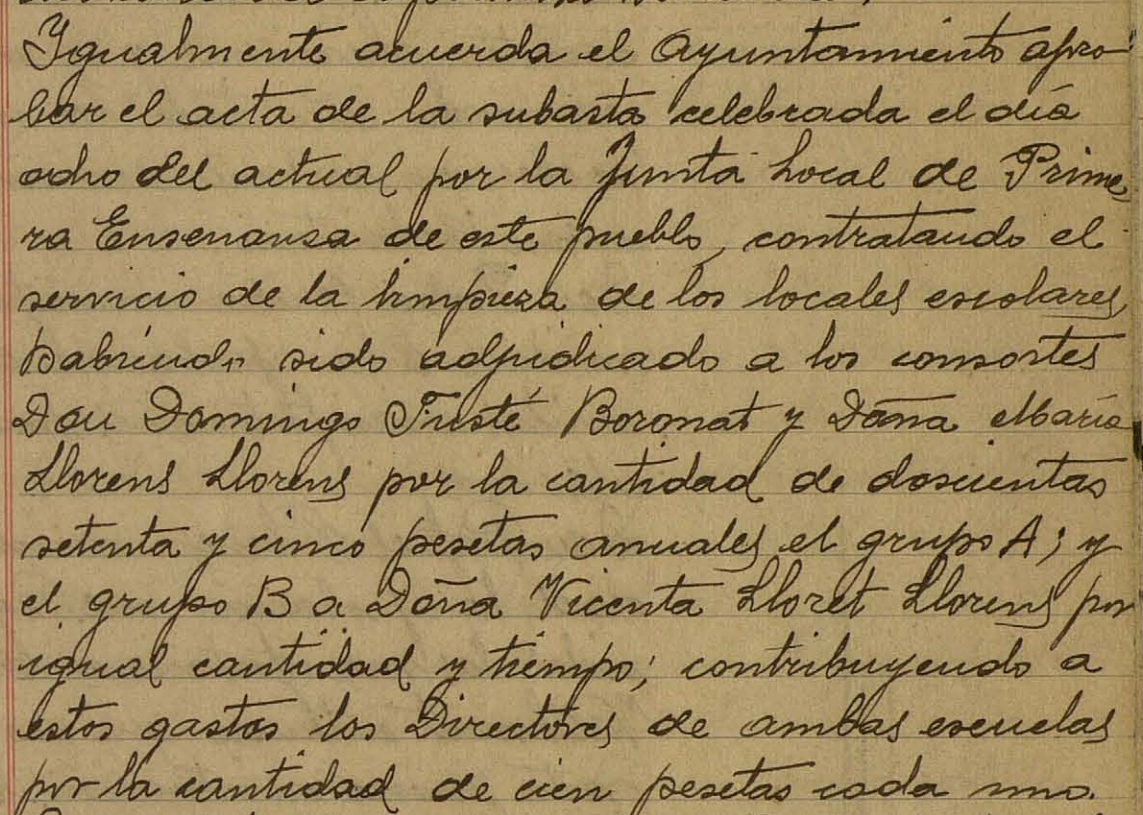 Igualmente acuerda el Ayuntamiento apro-
bar el acta de la subasta celebrada el día
ocho del actual por la Junta Local de Prime
ra Ensenansa de este pueblo, contratando el
servicio de la limpieza de los locales escolares,
habiendo sido adjudicado a los consortes
Don Domingo Fusté Boronat y Doña María
Llorens Llorens por la cantidad de doscientas
setenta y cinco pesetas anuales el grupo A; y
el grupo B a Doña Vicenta Lloret Llorens por
igual cantidad y tiempo; contribuyendo a
estos gastos los Directores de ambas escuelas
por la cantidad de cien pesetas cada uno.